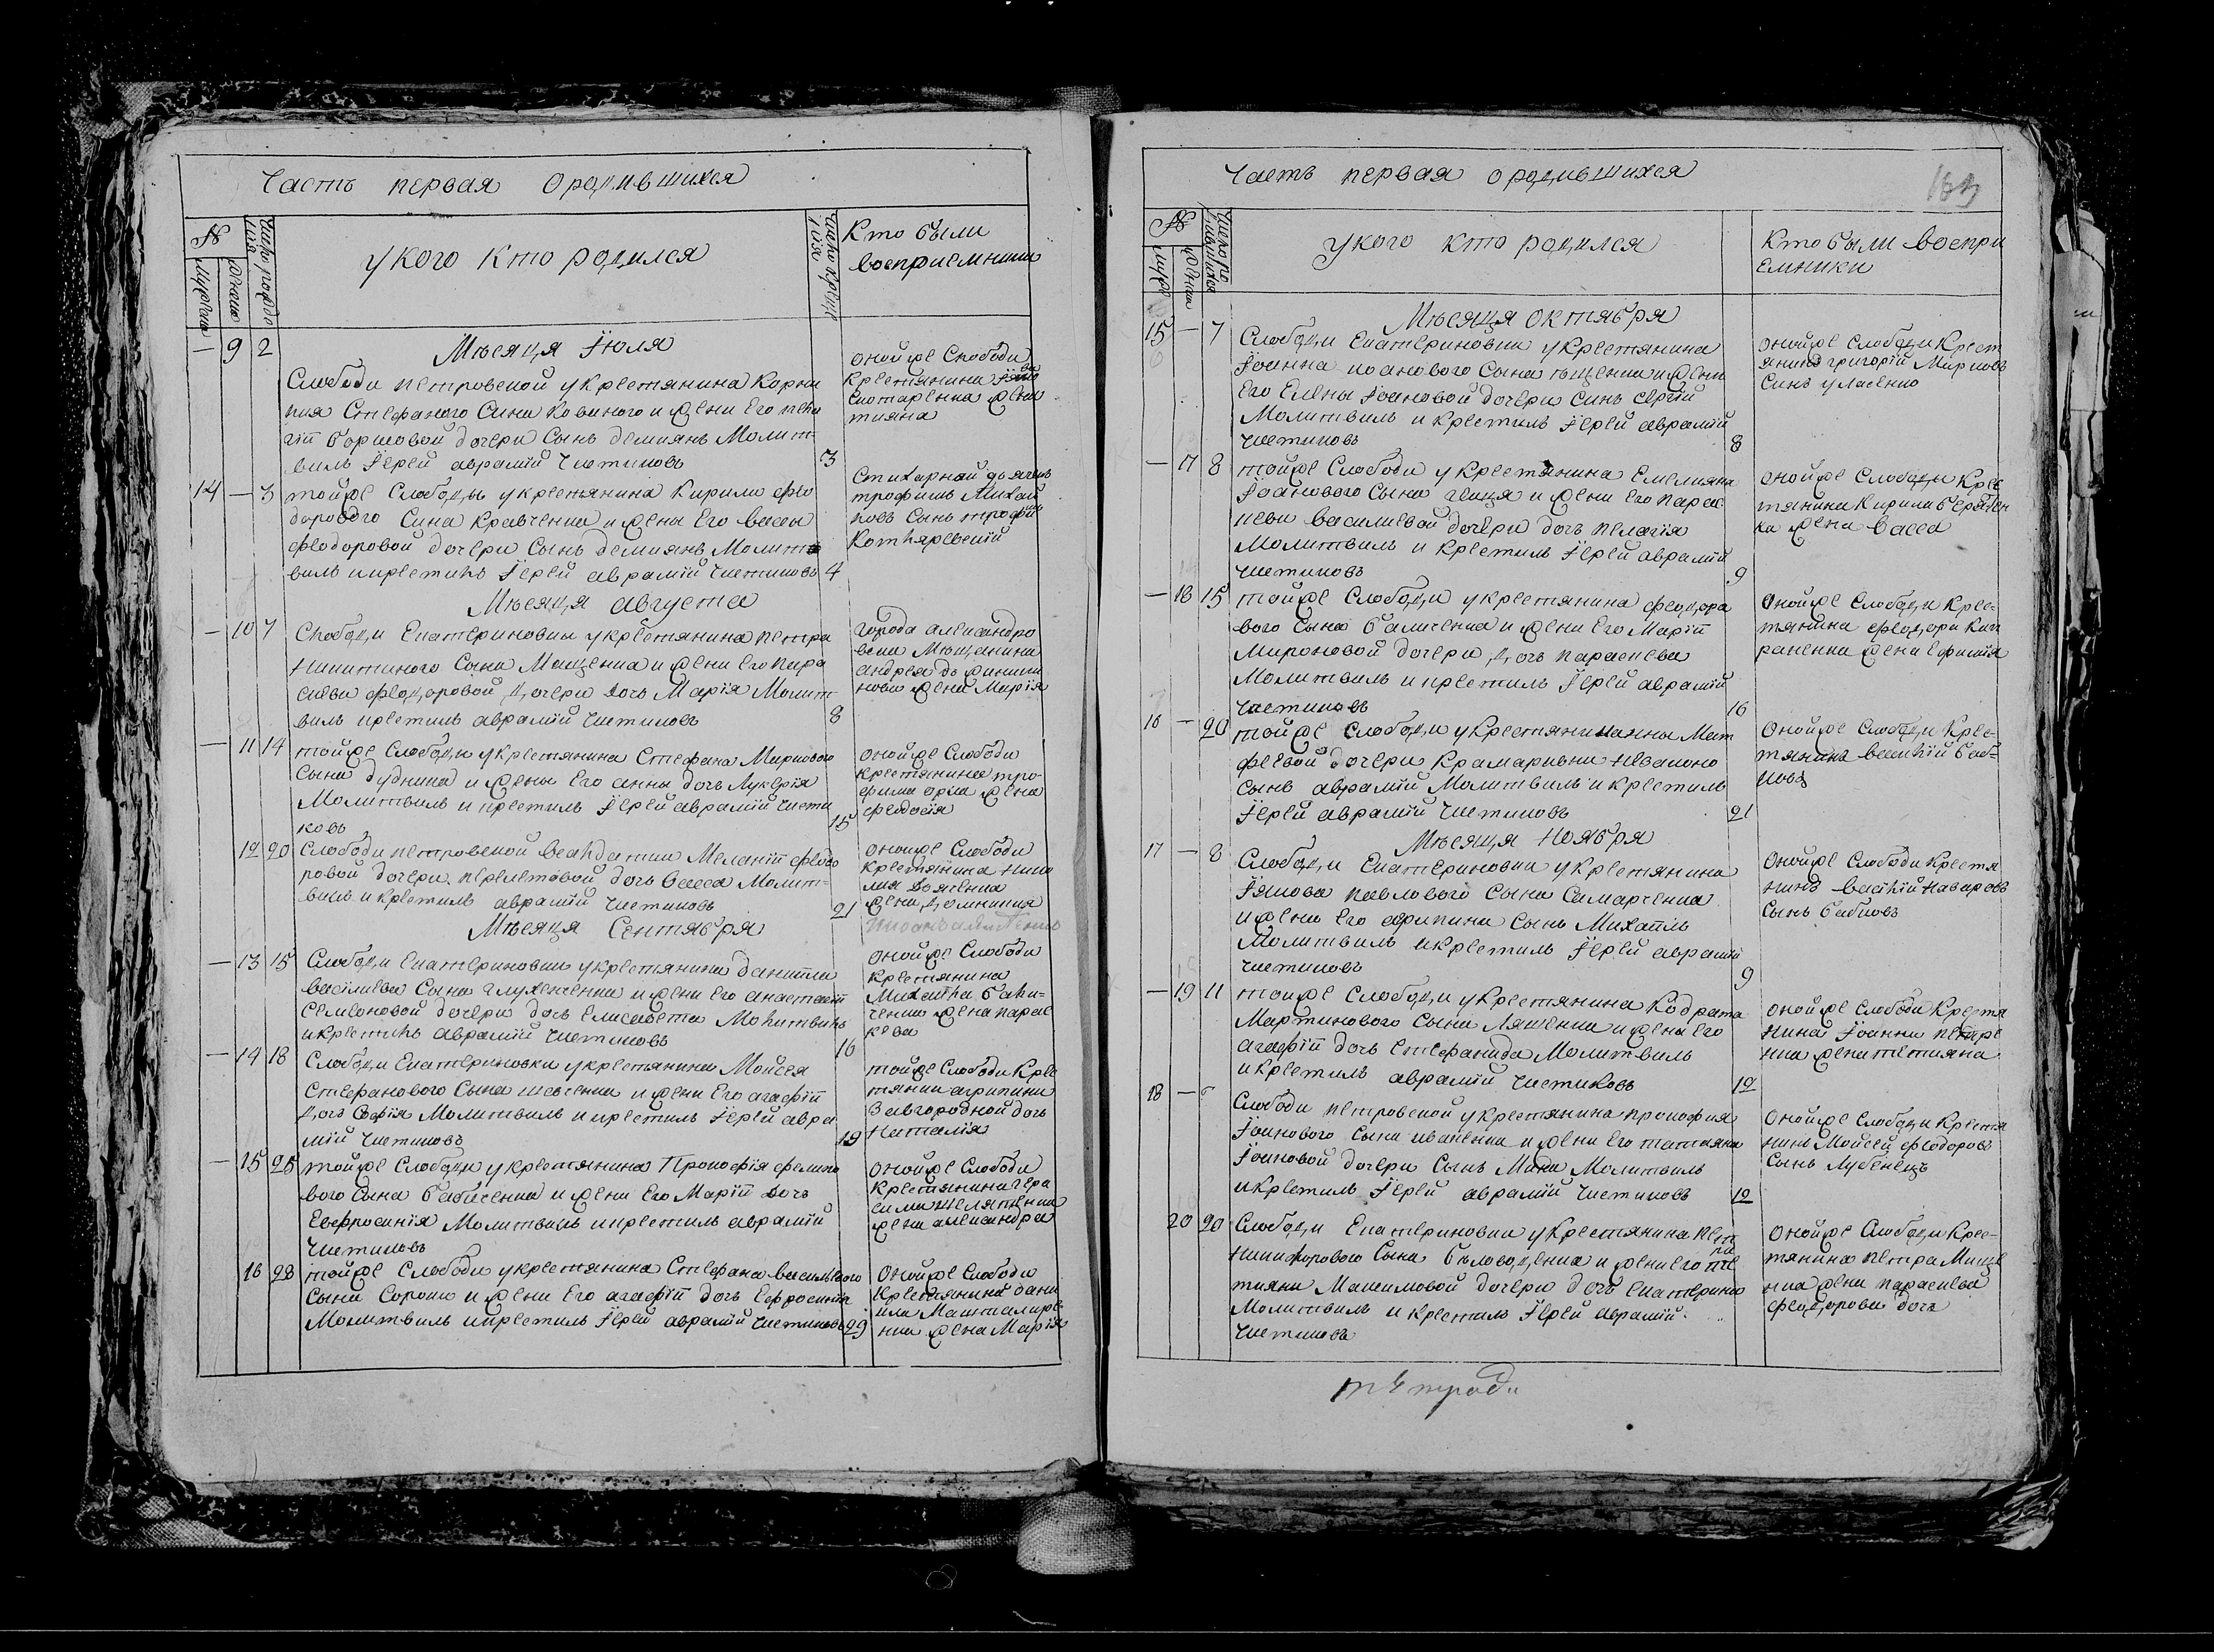 Часть первая ородившихся
№
Число рожде
нія
укого кто родился
Число крещ
Кто были
воспріемники
Мужеска
Женска
— 9 2
Мѣсяца Іюля
Слободи петровской укрестянина Корни
лія Стефаного Сина и жени Его пела
гіи дочери Сынъ демиянъ Молит-
виль Іерей аврамій Чистиковъ 3
оной же Слободи
крестянина
жени
тияна
14 — 3
тойже Слободы укрестянина Кирила фео
дорового Сина Кравченка и жены Его васы
феодоровой дочери Сынъ демиянъ Молит
виль икрестилъ Іерей аврамій Чистиковъ 4
Стихарной дьячекъ
трофимъ Михай
ловъ Сынъ
Котляревскій
Мѣсяца августа
— 10 7
Слободи Екатериновки укрестянина петра
Никитиного Сына Мащенка и жени Его пара
скеви феодоровой дочери дочь Марія Молит
виль крестилъ аврамій Чистиковъ 8
города александро
вска Мещанина
андрея
жена Марія
— 11 14
тойже Слободи укрестянина Стефана Миркового
Сына дудника и жены Его анны дочь Лукерія
Молитвиль и крестилъ Іерей аврамій Чисти
ковъ 15
онойже Слободи
крестянина тро-
фима орла жена
феодосія
12 20
Слободи петровской Меланіи феодо
ровой дочери дочь васса Молит-
виль и крестилъ аврамій Чистиковъ 21
онойже Слободи
крестянина Нико
лая
жена домникия
Мѣсяца Сентября
— 13 15
Слободи Екатериновки укрестянина даніила
василева Сына и жени Его анастасіи
Семеоновой дочери дочь Елисавета Молитвилъ
икрестилъ аврамій Чистиковъ 16
онойже Слободи
крестянина
Михаила бали-
ченка жена парас
кева
— 14 18
Слободи Екатериновки укрестянина Мойсея
Стефанового Сына шевченка и жени Его агафіи
дочь Софія Молитвиль и крестилъ Іерей авра
мій Чистиковъ 19
тойже Слободи Кре
стянки агрипини
Завгородной дочь
Наталія
— 15 25
тойже Слободи укрестянина Прокофія
вого Сына бабиченка и жени Его Маріи дочь
Евфросинія Молитвилъ икрестилъ аврамій
Чистиковъ
онойже Слободи
Крестянина гера
сима
жена александра
16 28
тойже Слободи укрестянина Стефана василиевого
Сына Сороки и жени Его агафіи дочь Ефросинія
Молитвилъ икрестилъ Іерей аврамій Чистиковъ 29
Онойже Слободи
Крестянина дани
ила
жена Марія
Часть первая ородившихся
163
№
укого кто родился
Кто были воспри
емники
Муже
Женска
Мѣсяца октября
15 — 7
Слободи Екатериновки укрестянина
Іоанна иоанового Сына и жени
Его Елены Іоановой дочери синъ Сергій
Молитвилъ и крестилъ Іерей аврамій
Чистиковъ 8
онойже Слободи Крест
янинъ григорій Мирковъ
Синъ уласенко
— 17 8
тойже Слободи у крестянина Емелияна
Іоанового Сына и жени Его парас
кеви василиевой дочери дочь пелагія
Молитвилъ и крестилъ Іерей аврамій
Чистиковъ 9
онойже Слободи Крес
тянина Кирила
жена васса
— 18 15
тойже Слободи укрестянина феодора
вого Сына баличенка и жени Его Маріи
Мироновой дочери, дочь параскева
Молитвилъ и крестилъ Іерей аврамій
Чистиковъ 16
Онойже Слободи Кре-
стянина феодора
жена Ефимія
16 — 20
тойже Слободи укрестянина анны Мат
феевой дочери Крамаривни Незаконо
сынъ аврамій Молитвилъ и крестилъ
Іерей аврамій Чистиковъ 21
Онойже Слободи Кре-
стянинъ василій баб-
ковъ
Мѣсяца Ноября
17 — 8
Слободи Екатериновки укрестянина
Іякова павлового Сына Самарченка
и жени Его агрипини Сынъ Михаилъ
Молитвилъ икрестилъ Іерей аврамій
Чистиковъ 9
Онойже Слободи Крестя
нинъ василій Назаровъ
Сынъ бабковъ
— 19 11
тойже Слободи укрестянина Кодрата
Мартинового Сына Ляшенка и жени Его
агафіи дочь Стефанида Молитвилъ
икрестилъ аврамій Чистиковъ 12
онойже Слободи Крестя
нина Іоанна
жена тетияна
18 — 6
Слободи петровской укрестянина прокофия
Іоанового Сына иваненка и жени Его татияни
Іоановой дочери Сынъ Мина Молитвилъ
икрестилъ Іерей аврамій Чистиковъ 12
Онойже Слободи Крестя
нинъ Мойсей феодоровъ
Сынъ Лубенецъ
20 20
Слободи Екатериновки укрестянина пет
ра
Никифорового Сына и жени Его те
тияни Максимовой дочери дочь Екатерина
Молитвилъ и крестилъ Іерей аврамій
Чистиковъ
Онойже Слободи Кре-
стянина петра Маще
нка жена параскева
феодорова дочь